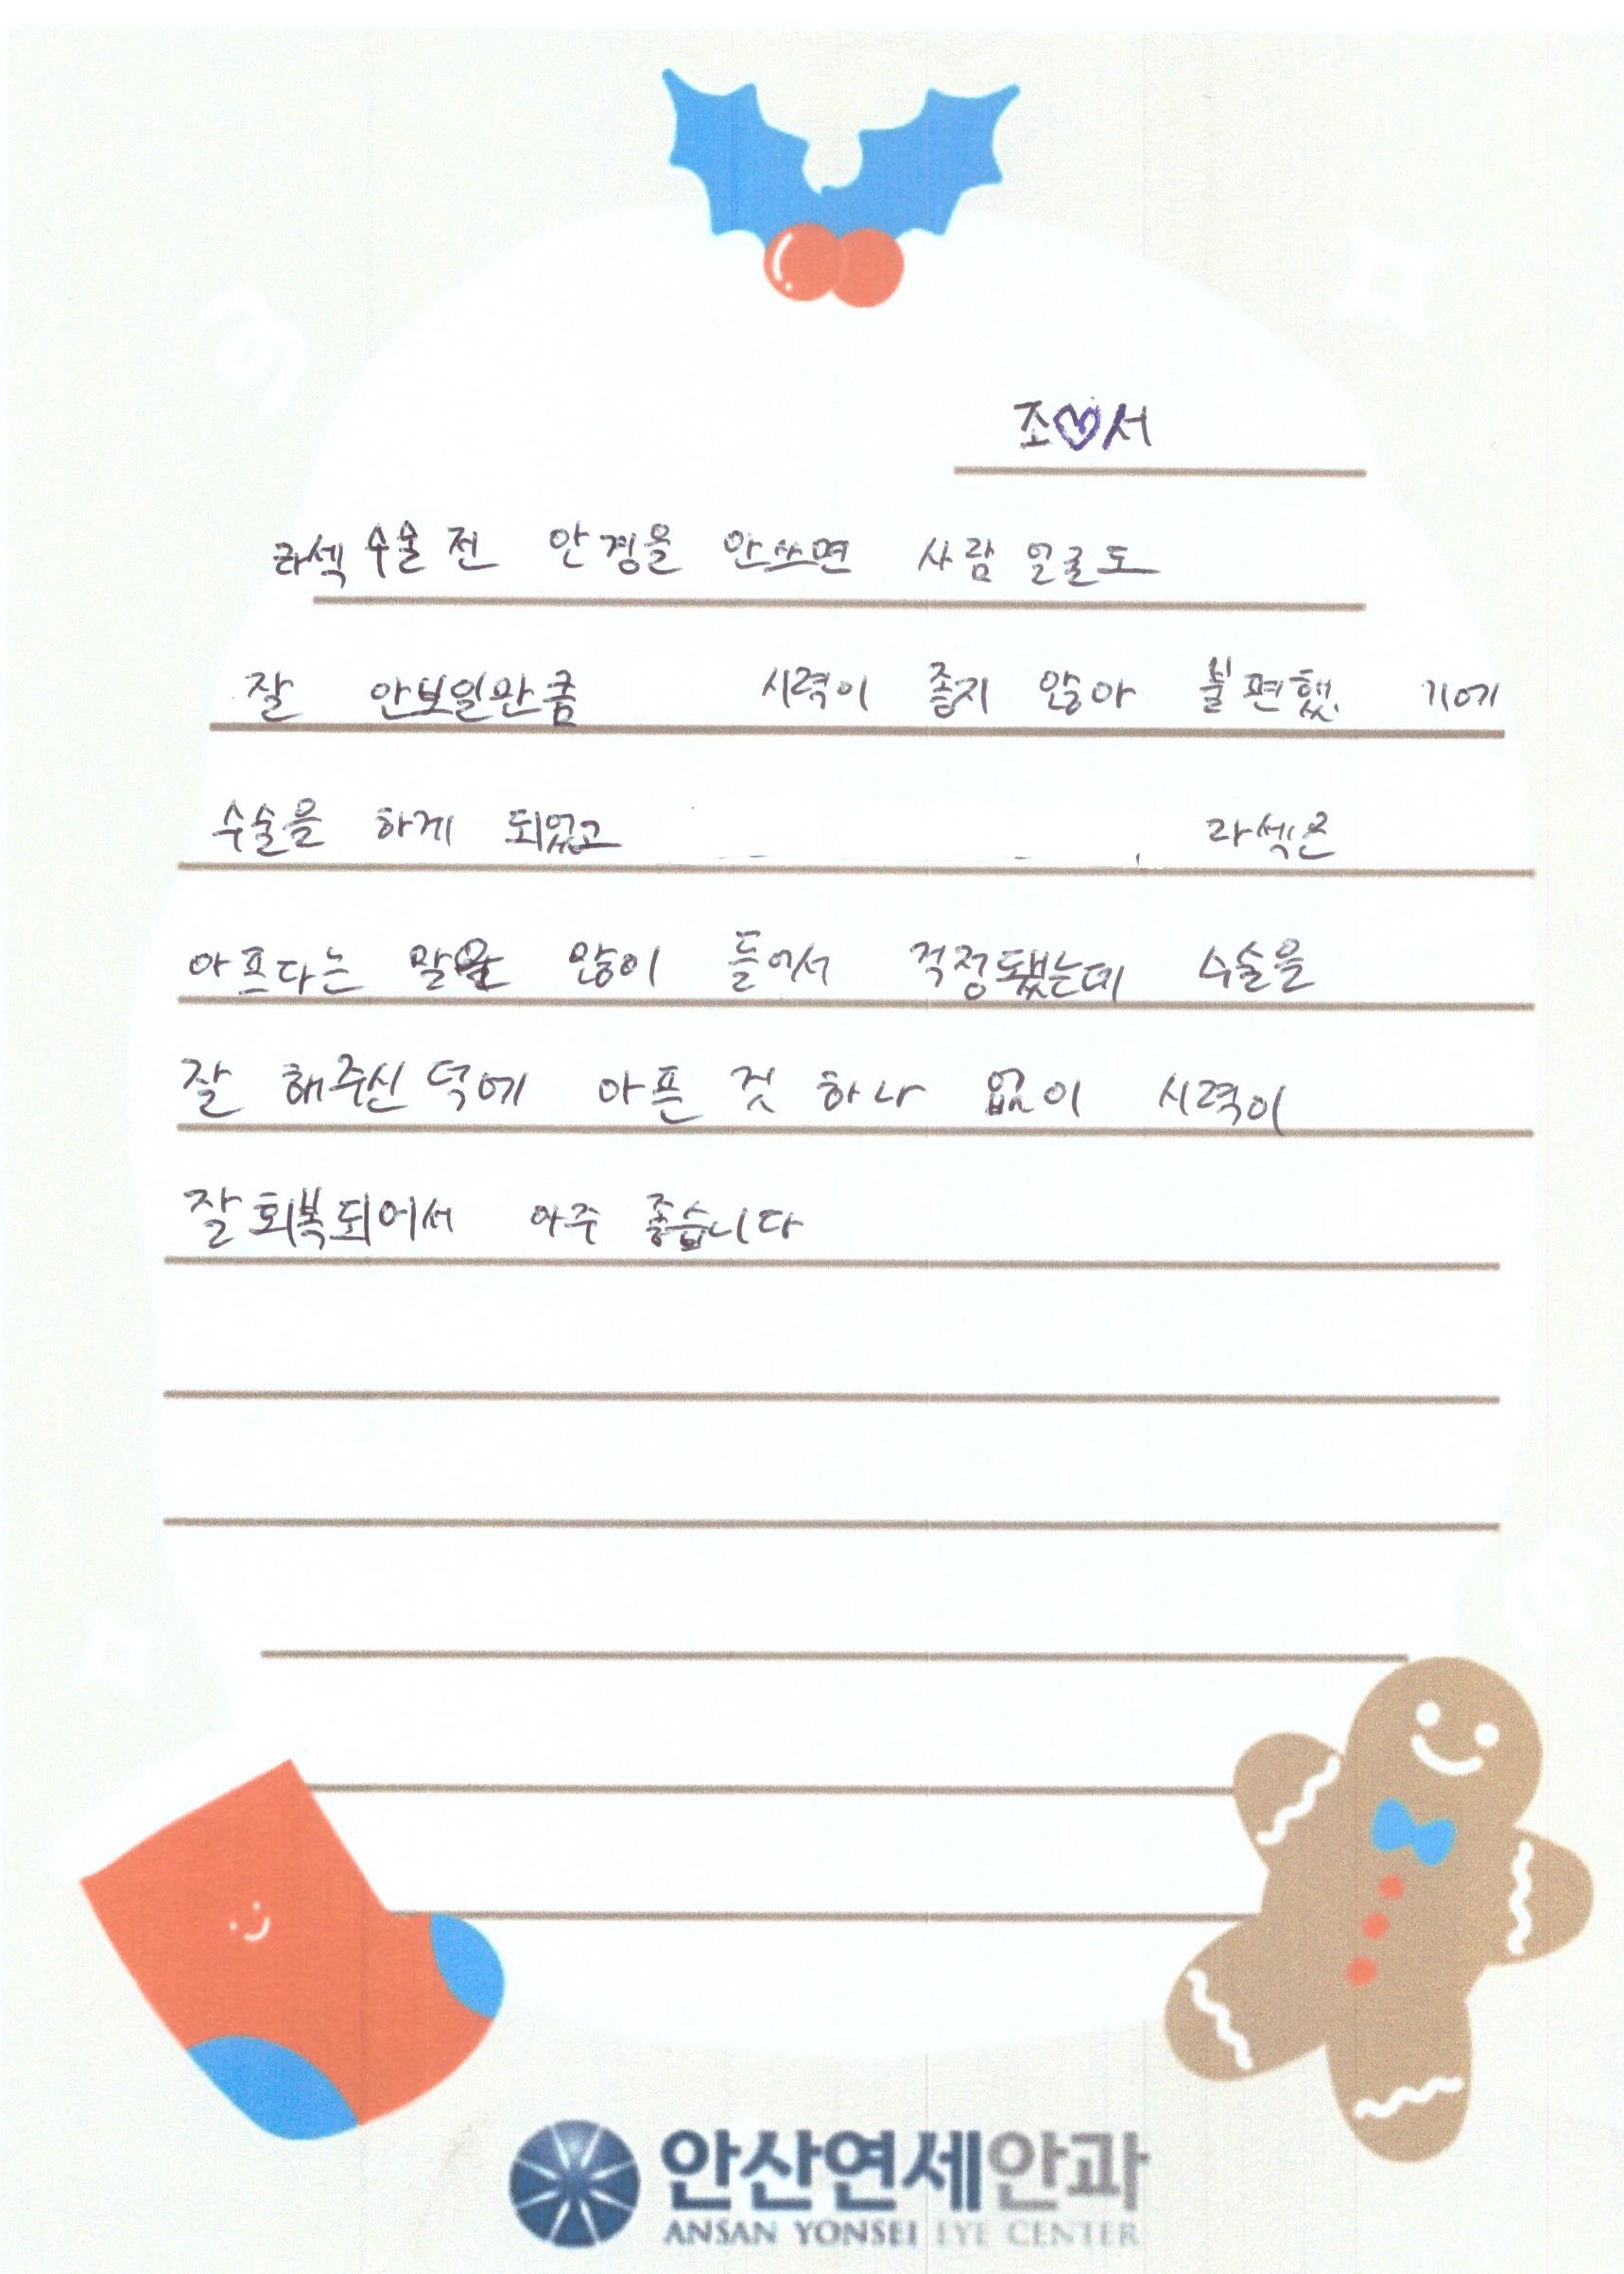 조♡서
라섹 수술 전 안경을 안쓰면 사람 얼굴도
잘 안보일만큼 시력이 좋지 않아 불편했기에
수술을 하게 되었고 라섹은
아프다는 말을 많이 들어서 걱정됐는데 수술을
잘 해주신 덕에 아픈 것 하나 없이 시력이
잘 회복되어서 아주 좋습니다
안산연세안과
ANSAN YONSEI EYE CENTER